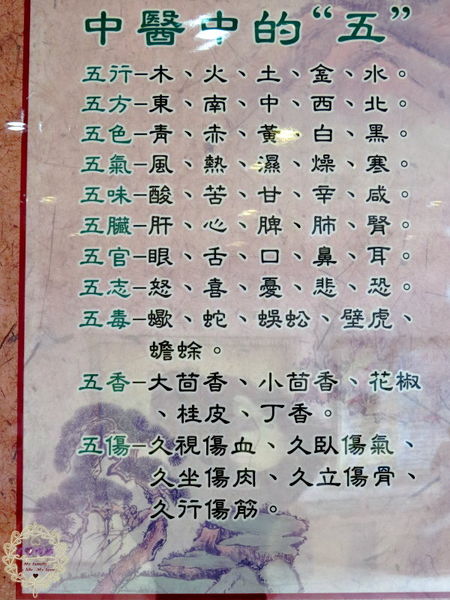 中醫中的“五”
五行–木、火、土、金、水。
五方–東、南、中、西、北。
五色–青、赤、黃、白、黑。
五氣–風、熱、濕、燥、寒。
五味–酸、苦、甘、辛、咸。
五臟–肝、心、脾、肺、腎。
五官–眼、舌、口、鼻、耳。
五志–怒、喜、憂、悲、恐。
五毒–蠍、蛇、蜈蚣、壁虎、
蟾蜍。
五香–大茴香、小茴香、花椒
、桂皮、丁香。
五傷–久視傷血、久臥傷氣、
久坐傷肉、久立傷骨、
久行傷筋。
My family